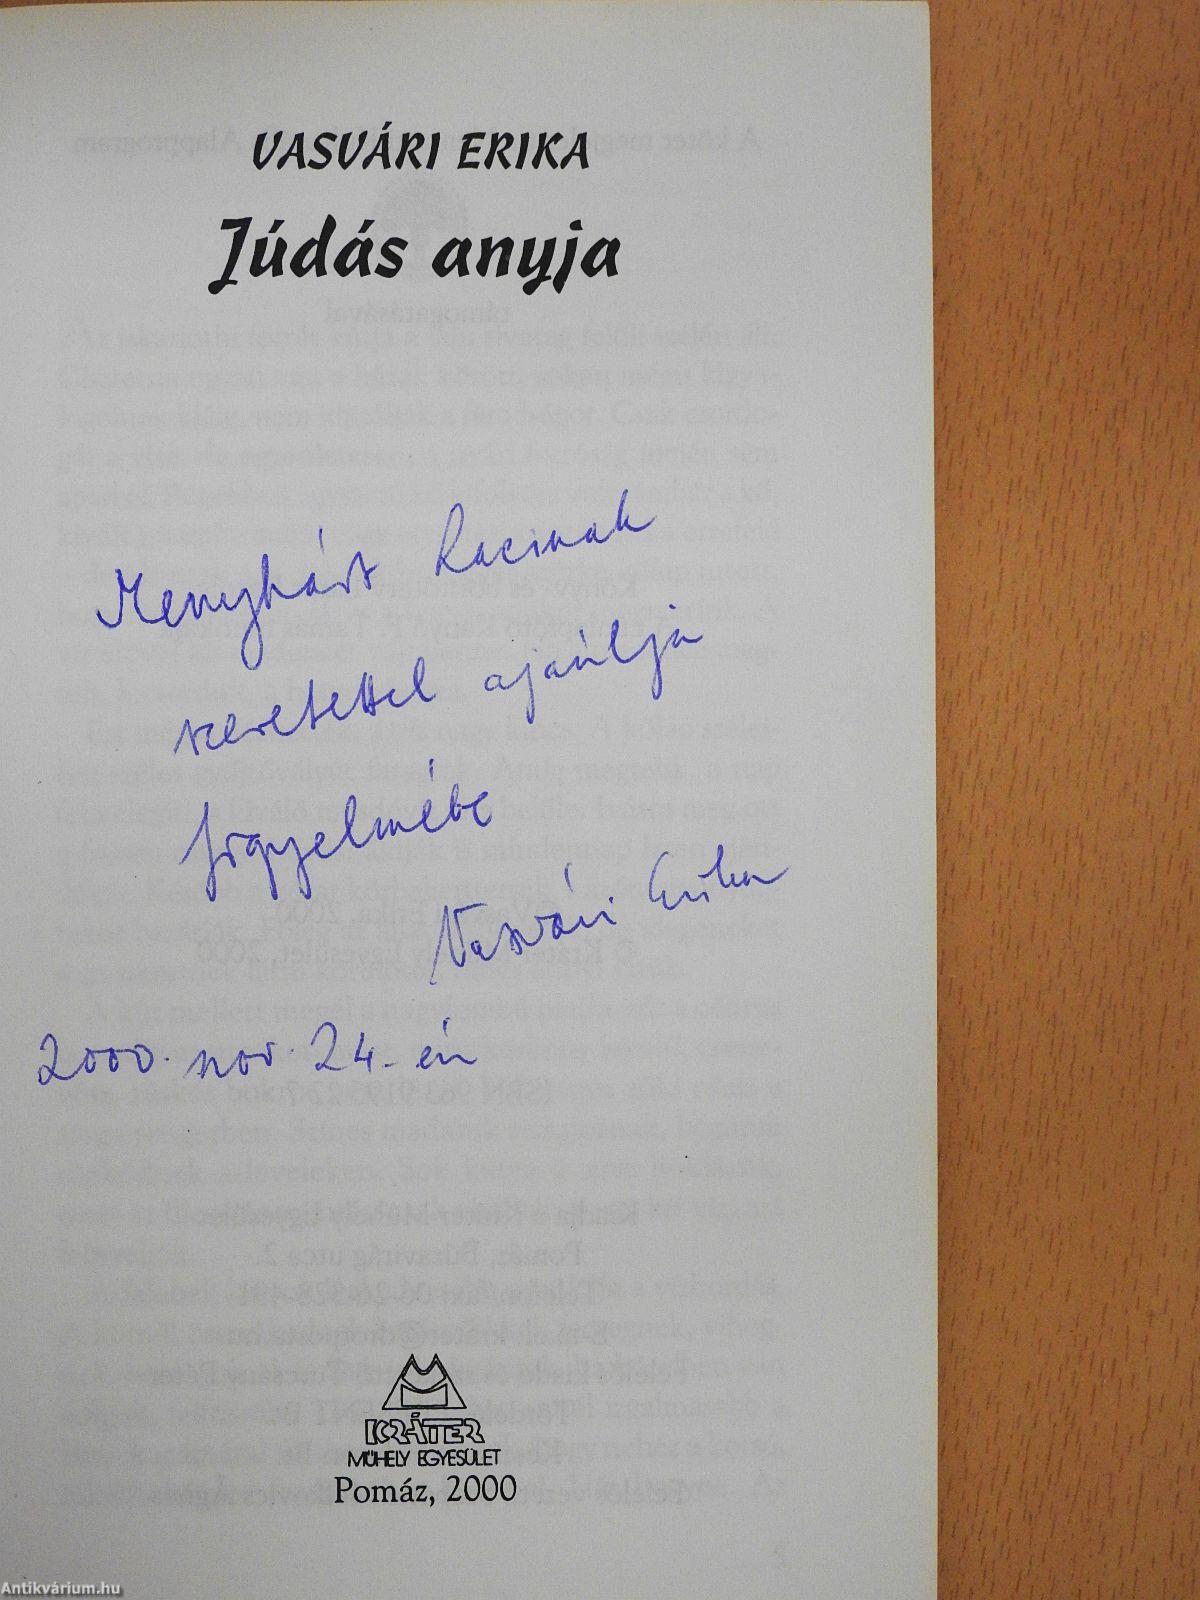 VASVÁRI ERIKA
Júdás anyja
Menyhárt Lacinak
szeretettel ajánlja
figyelmébe
Vasvári Erika
2000. nov. 24-én
KRÁTER
MŰHELY EGYESÜLET
Pomáz, 2000
Antikvárium.hu